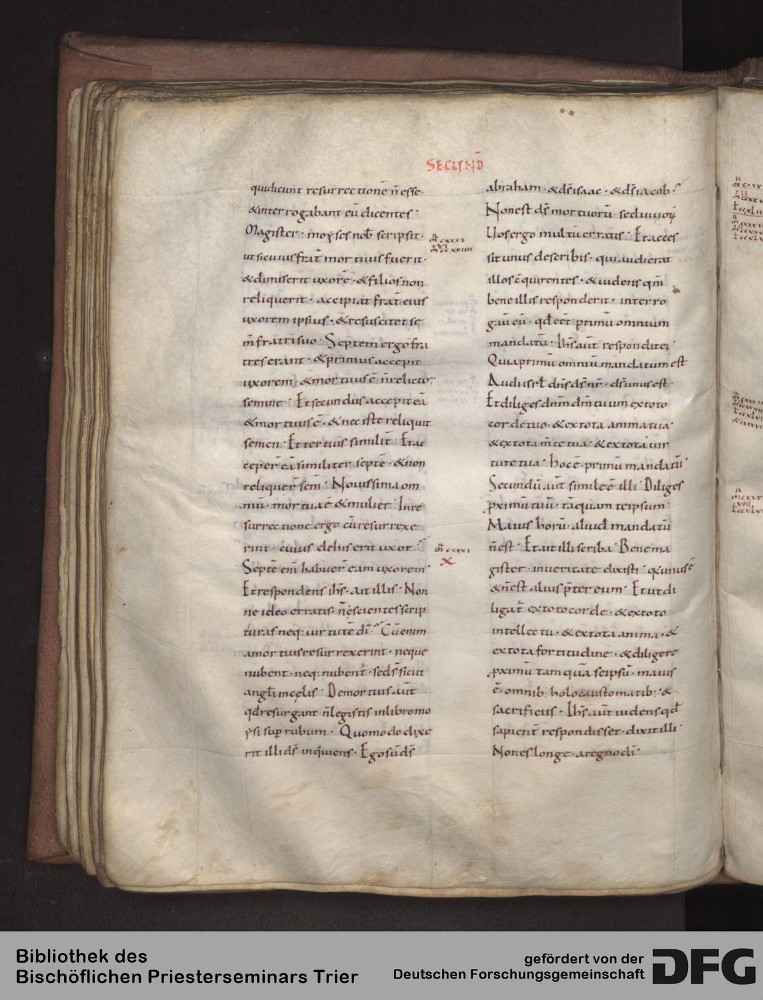 SECUND̄
quidicunt resurrectionē n̄ esse·
& interrogabant eū dicentes·
Magister· moyses nob̄ scripsit·
ut sicuius frāt mortuus fuerit·
& dimiserit uxorē· & filios non
reliquerit· accipiat frāt eius
uxorem ipsius· & resuscitet se
m̄ fratri suo· Septem ergo fra
tres erant· & primus accepit
uxorem· & mortuus ē n̄ relicto
semine· Et secundus accepit eā
& mortuus ē· & nec iste reliquit
semen· Et tertius similit̄· Et ac
ceper̄ eā similiter septē· & non
reliquer̄ sem̄· Nouissima om
niū· mortua ē & mulier· In re
surrectione ergo cū resurrexe
rint· cuius de his erit uxor·
Septē enī habuer̄ eam uxorem·
Et respondens ihs̄· ait illis· Non
ne ideo erratis· n̄ scientes scrip
turas neq; uirtutē dī· Cū enim
a mortuis resurrexerint· neque
nubent· neq; nubent̄· sed s̄ sicut
angl̄i in cęlis· De mortuis aut̄
qd̄ resurgant n̄ legistis in libro mo
ysi sup̄ rubum· Quomodo dixe
rit illi ds̄ inquiens· Ego sū ds̄
abraham· & ds̄ isaac· & ds̄ iacob·
Non est ds̄ mortuorū· sed uiuoꝝ
Uos ergo multū erratis· Et acces
sit unus de scribis· qui audierat
illos c̄quirentes· & uidens qm̄
bene illis responderit· interro
gau̅ eū· qd̄ eēt primū omnium
mandatū· Ihs̄ aut̄ respondit ei·
Quia primū omniū mandatum est
Audi isrl̄ dn̄s ds̄ nr̄· ds̄ unus est·
Et diliges dn̄m dm̄ tuum ex toto
corde tuo· & ex tota anima tua
& ex tota m̄te tua· & ex tota uir
tute tua· hoc ē primū mandatū·
Secundū aut̄ simile ē illi· Diliges
ꝓximū tuū· tāquam te ipsum·
Maius horū· aliud mandatū
n̄ est· Et ait illi scriba· Bene ma
gister· in ueritate dixisti· q̄a unus ē
& n̄ est alius p̄ter eum· Et ut di
ligat̄ ex toto corde· & ex toto
intellectu· & ex tota anima· &
ex tota fortitudine· & diligere
ꝓximū tamquā se ipsū· maius
ē· omnib; holocaustomatib;· &
sacrificiis· Ihs̄ aut̄ uidens qd̄
sapient̄ respondisset· dixit illi·
Non es longe· a regno dī·
Bibliothek des
Bischöflichen Priesterseminars Trier
gefördert von der
Deutschen Forschungsgemeinschaft
DFG